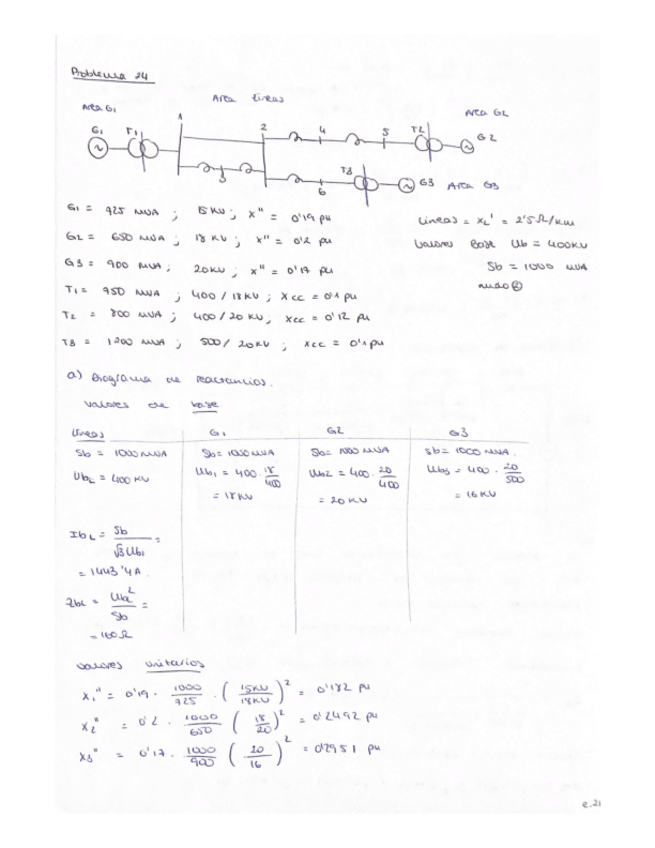 Problema 24
Area G1
Area lineas
Area G2
1
G1
T1
2
4
5
T2
G2
3
T3
6
G3 Area G3
G1 = 925 MVA ; 15 KV ; x'' = 0'19 pu
G2 = 650 MVA ; 18 KV ; x'' = 0'2 pu
G3 = 900 MVA ; 20 KV ; x'' = 0'17 pu
T1 = 950 MVA ; 400 / 18 KV ; Xcc = 0'1 pu
T2 = 800 MVA ; 400 / 20 KV , Xcc = 0'12 pu
T3 = 1200 MVA ; 500 / 20 KV ; Xcc = 0'1 pu
Lineas = XL' = 2'5 Ω/km
Valores Base Ub = 400KV
Sb = 1000 MVA
nudo ②
a) Diagrama de reactancias.
Valores de base
Lineas
G1
G2
G3
Sb = 1000 MVA
Sb = 1000 MVA
Sb = 1000 MVA
Sb = 1000 MVA.
UbL = 400 KV
Ub1 = 400 · 18/400
Ub2 = 400 · 20/400
Ub3 = 400 · 20/500
= 18 KV
= 20 KV
= 16 KV
IbL = Sb/√3 UbL =
= 1443'4 A.
ZbL = UbL²/Sb =
= 160 Ω
Valores unitarios
X1'' = 0'19 · 1000/925 · (15KV/18KV)² = 0'182 pu
X2'' = 0'2 · 1000/650 (18/20)² = 0'2492 pu
X3'' = 0'17 · 1000/900 (20/16)² = 0'2951 pu
e.21